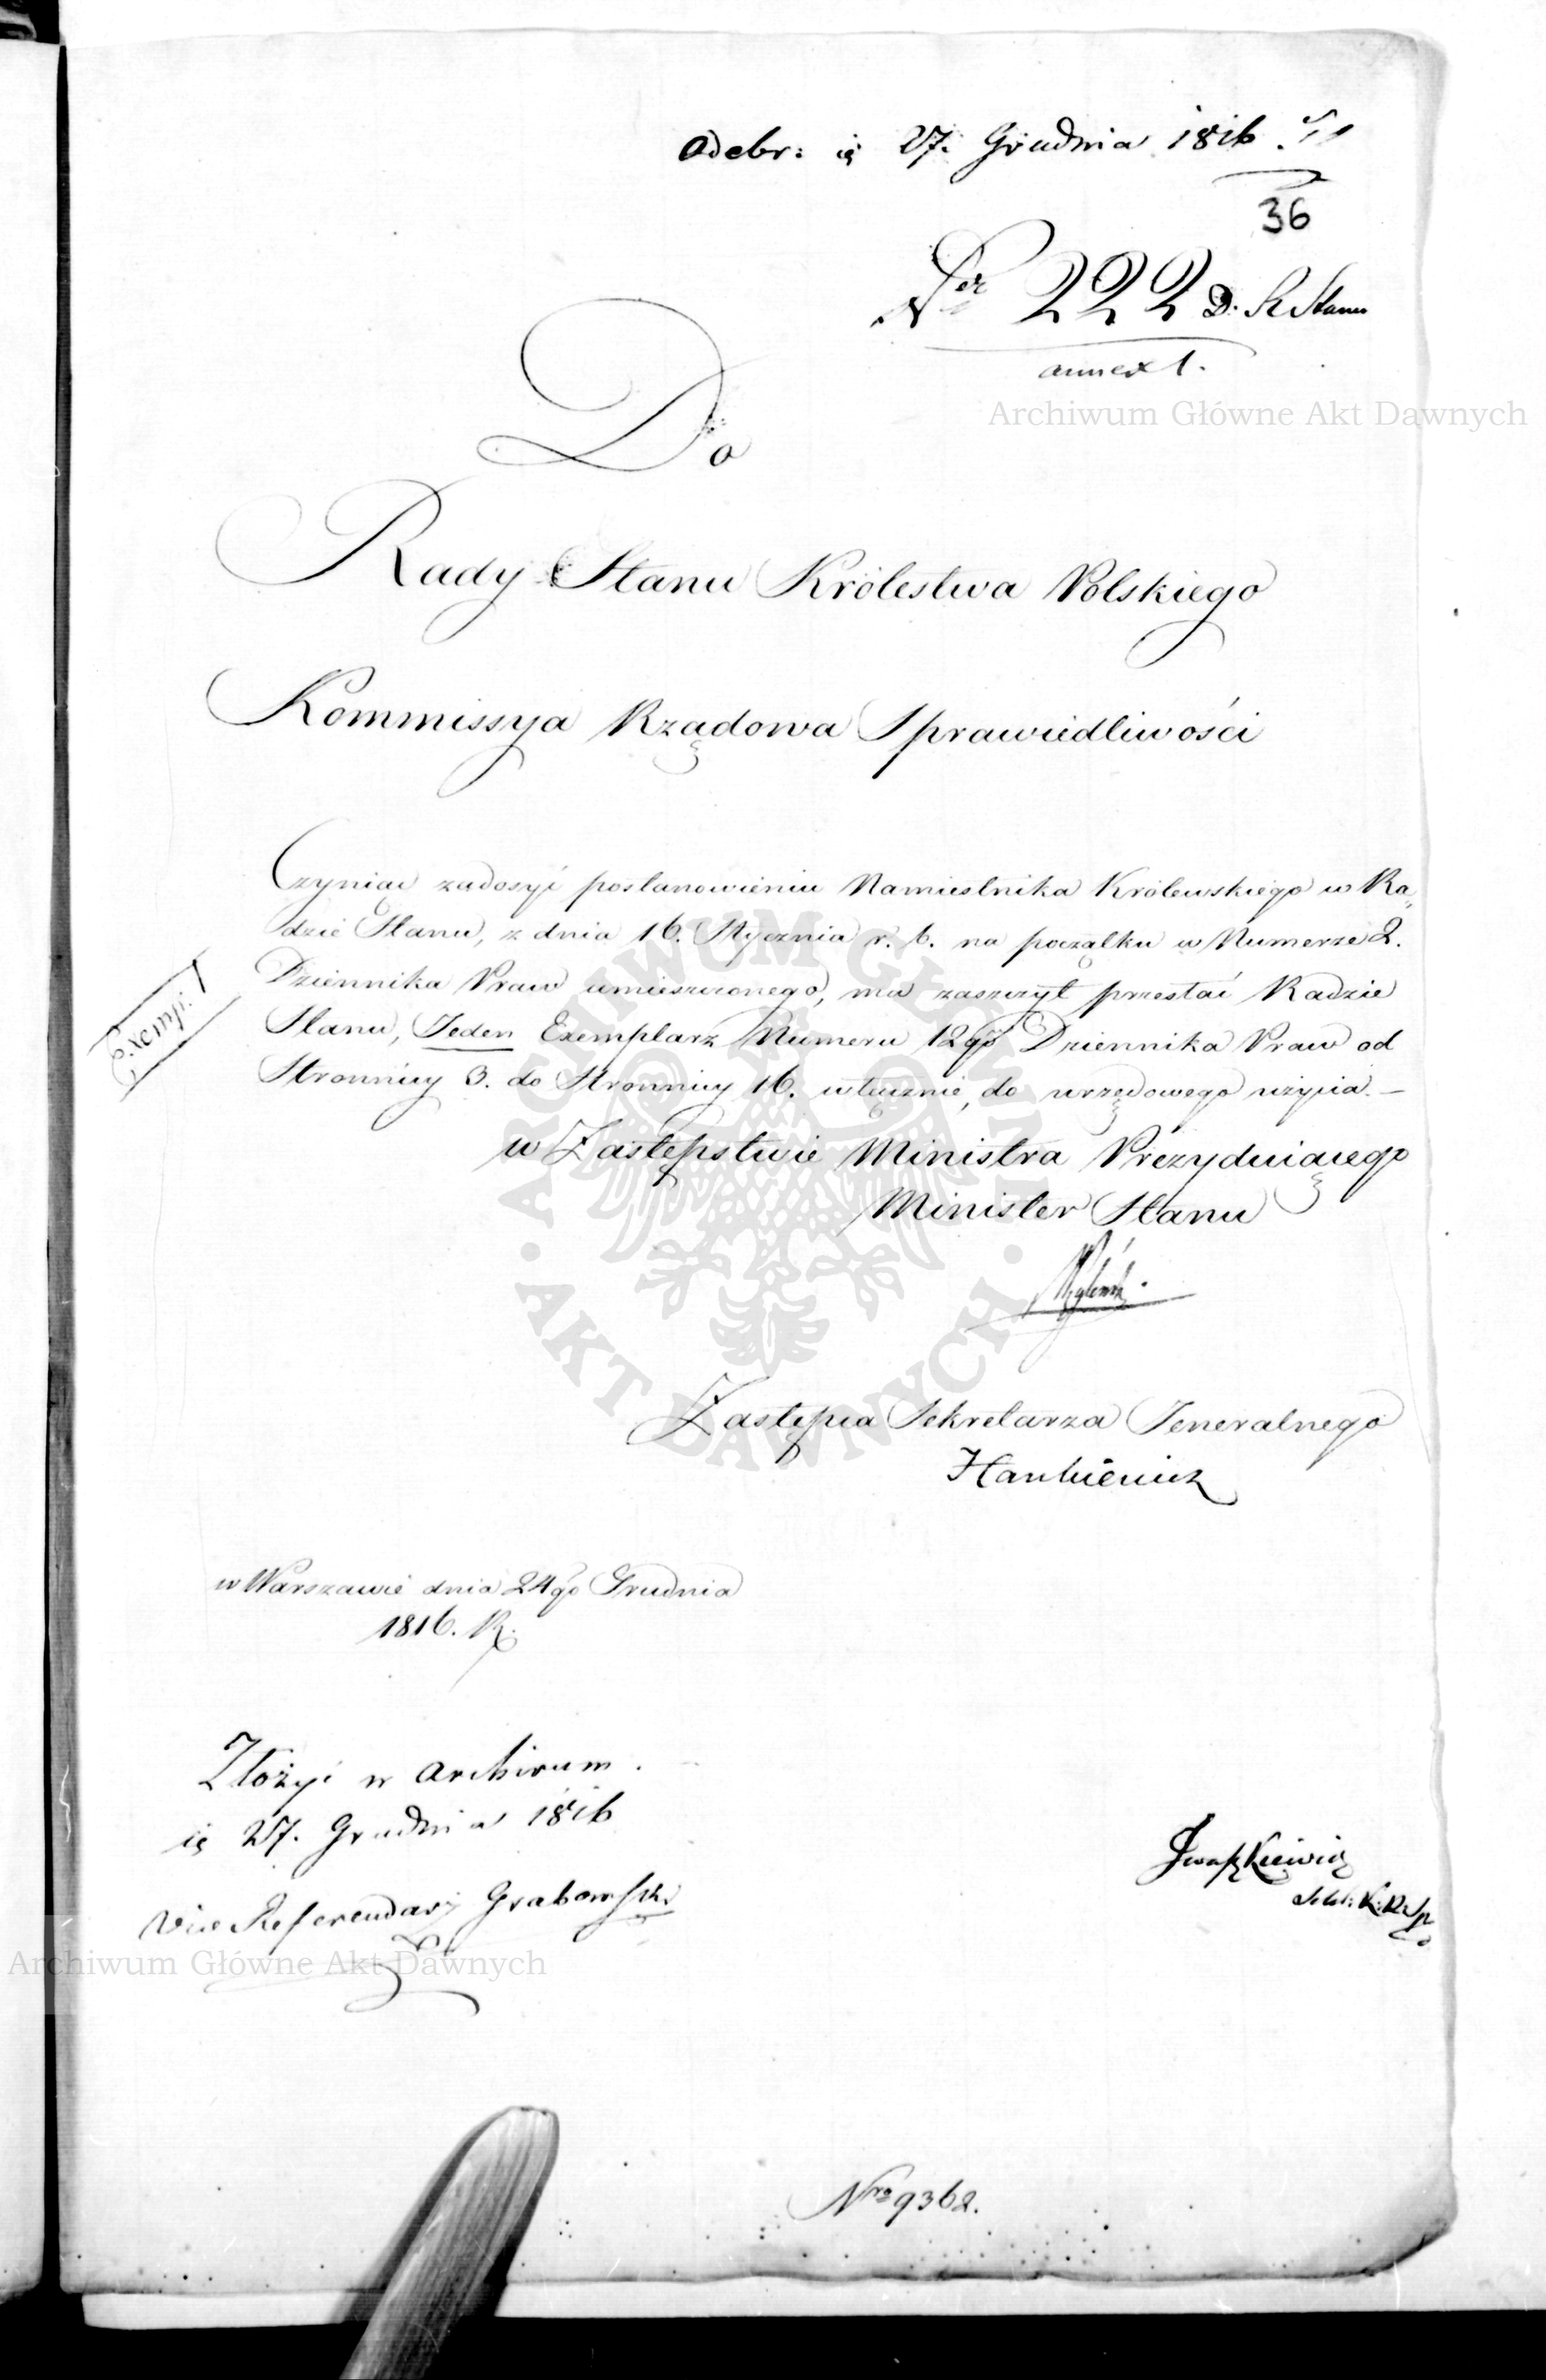 Odebr: 27. Grudnia 1816
36
Ner 222 D. R Stanu
annex 1.
Archiwum Główne Akt Dawnych
Do
Rady Stanu Królestwa Polskiego
Kommissya Rządowa Sprawiedliwości
Czyniąc zadosyć postanowieniu Namiestnika Królewskiego w Ra,
dzie Stanu, z dnia 16. Stycznia r. b. na początku w Numerze 2.
Dziennika Praw umieszczonego, ma zaszczyt przesłać Radzie
Exemp: 1
Stanu, Jeden Exemplarz Numeru 12go Dziennika Praw od
Stronnicy 3. do Stronnicy 16. włącznie, do urzędowego użycia. –
w Zastępstwie Ministra Prezyduiącego
Minister Stanu
Zastępca Sekretarza Jeneralnego
Hankiewicz
w Warszawie dnia 24go Grudnia
1816. R.
Złożyć w Archiwum.
27. Grudnia 1816
Vice Referendarz Grabowski
Iwaszkiewicz
Archiwum Główne Akt Dawnych
Nro 9362.
ARCHIWUM GŁÓWNE • AKT DAWNYCH •